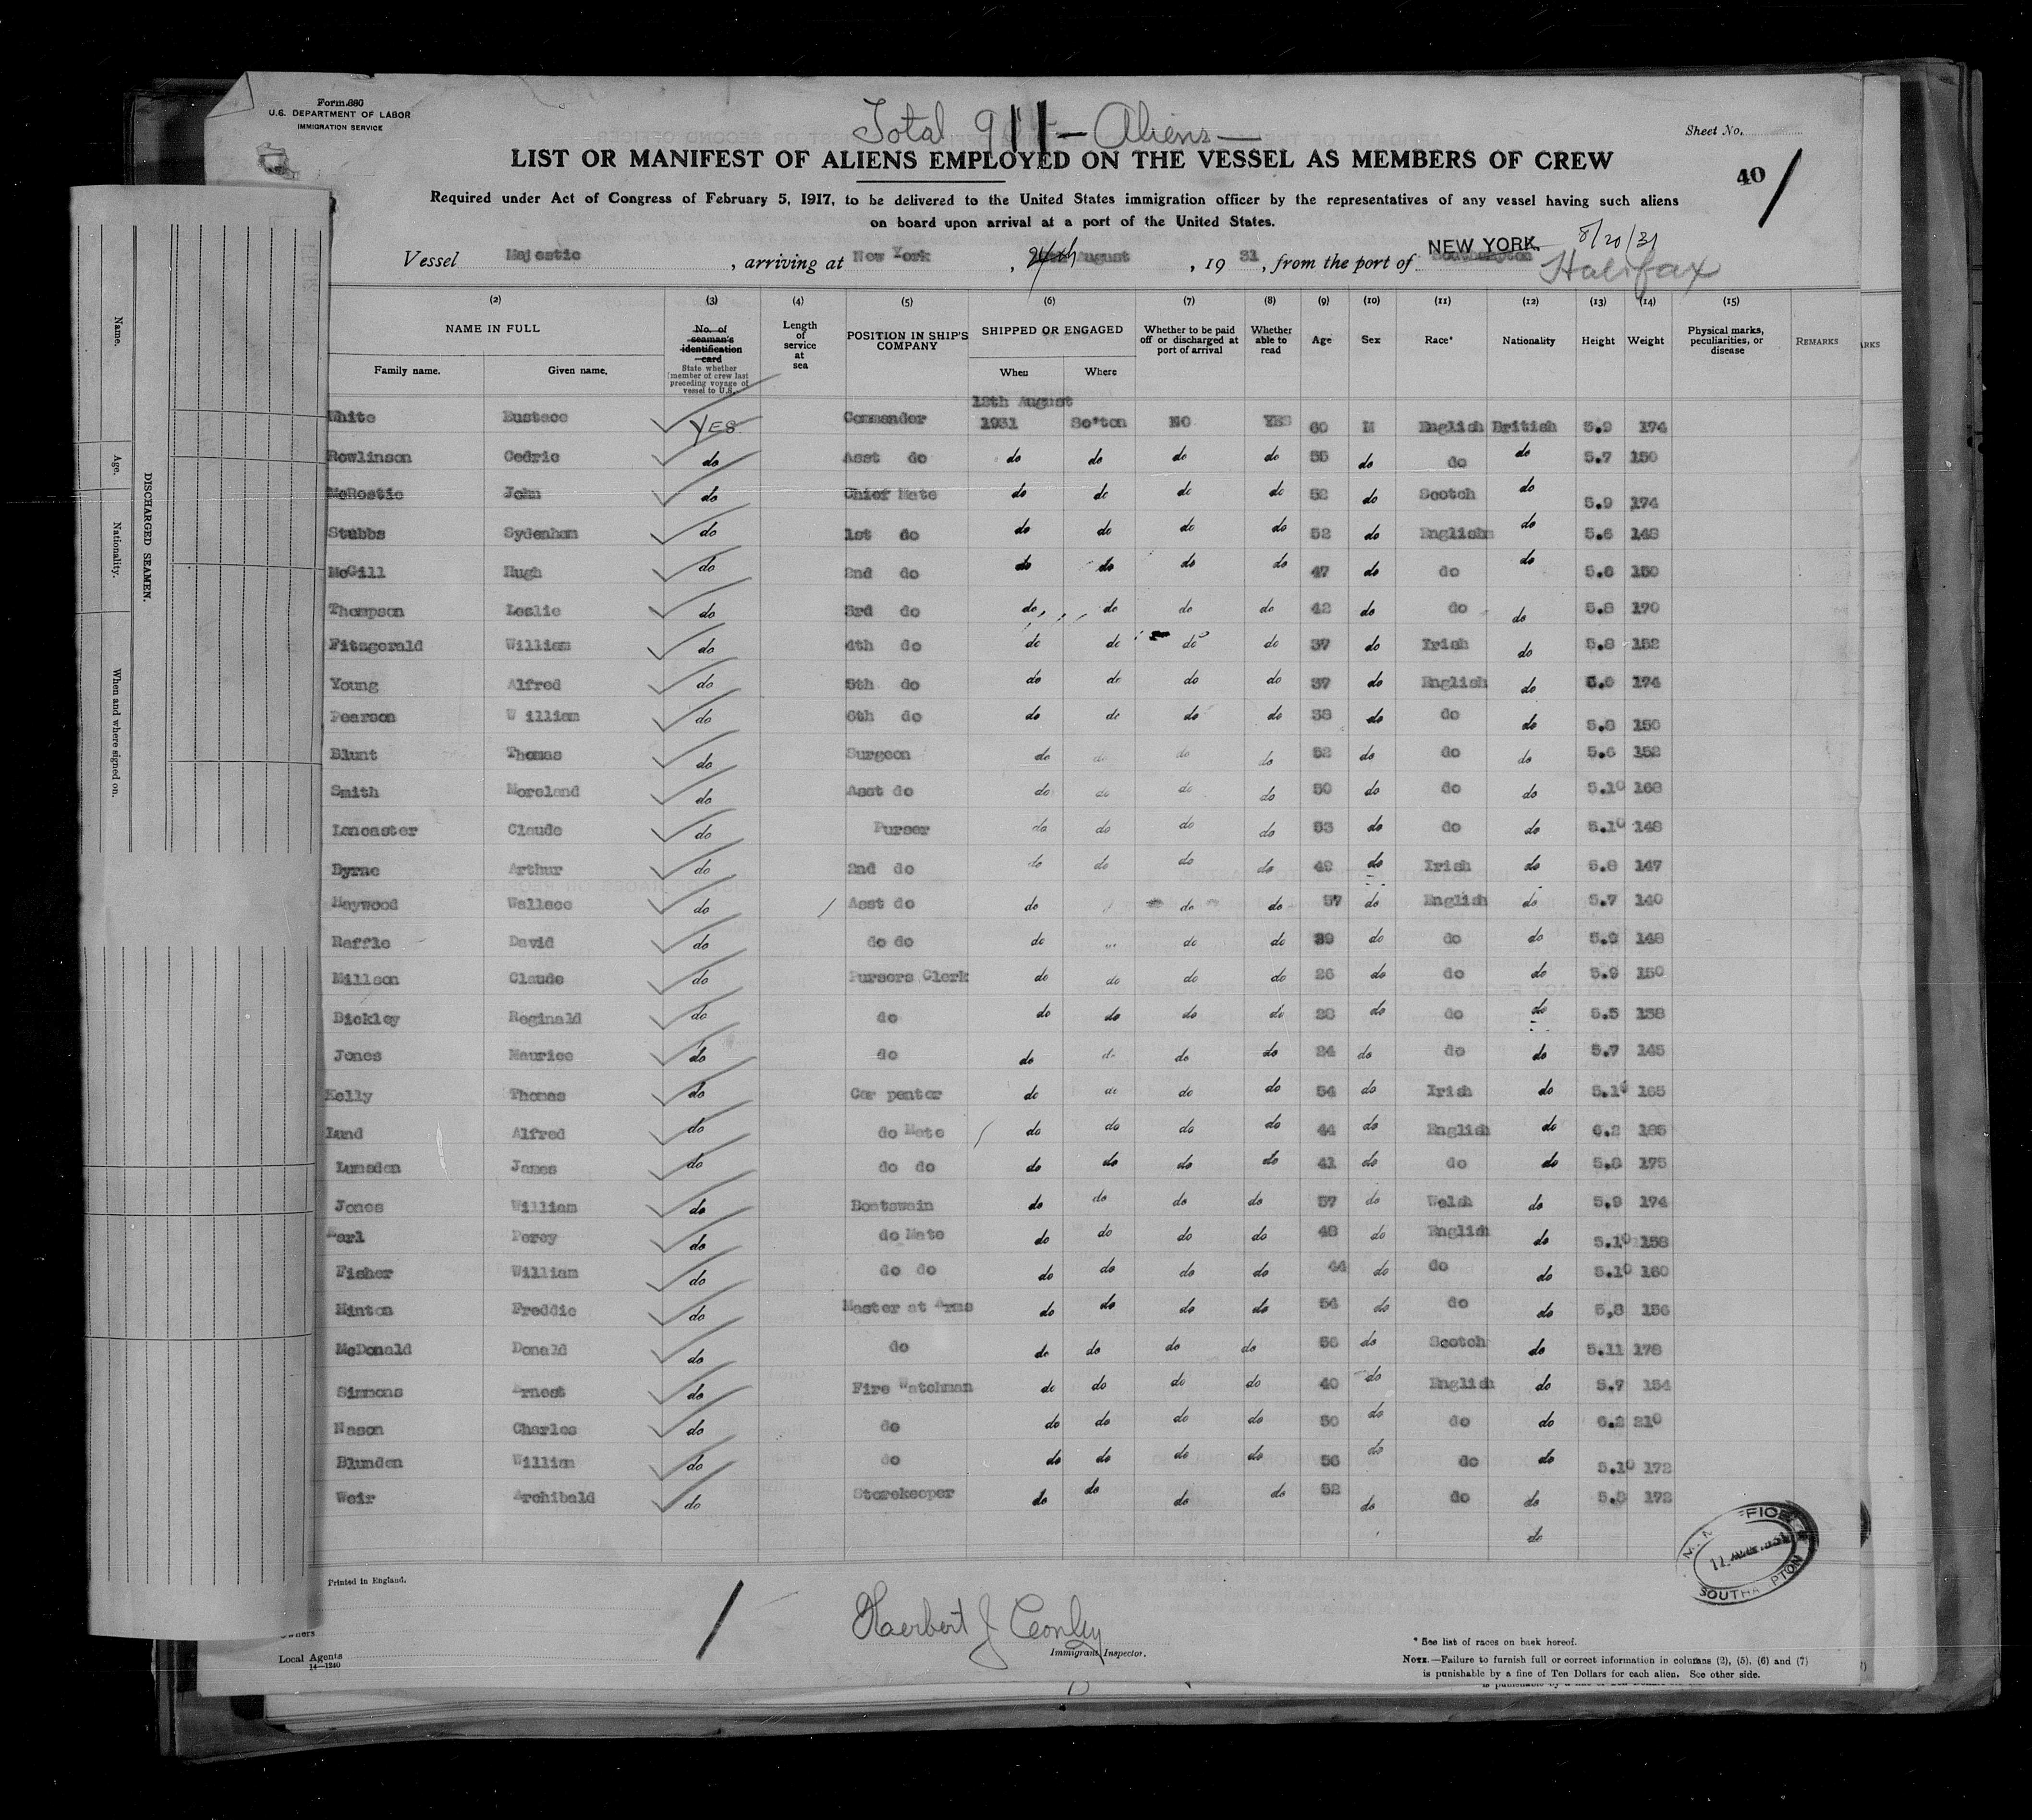 Form 680
U.S. DEPARTMENT OF LABOR
IMMIGRATION SERVICE
Total 911 — Aliens —
Sheet No.
LIST OR MANIFEST OF ALIENS EMPLOYED ON THE VESSEL AS MEMBERS OF CREW
40
Required under Act of Congress of February 5, 1917, to be delivered to the United States immigration officer by the representatives of any vessel having such aliens
on board upon arrival at a port of the United States.
NEW YORK. 8/20/31
Vessel Majestic, arriving at New York, August, 1931, from the port of Southampton Halifax
(2) (3) (4) (5) (6) (7) (8) (9) (10) (11) (12) (13) (14) (15)
NAME IN FULL
Family name. Given name.
No. of seaman's identification card
State whether member of crew last preceding voyage of vessel to U.S.
Length of service at sea
POSITION IN SHIP'S COMPANY
SHIPPED OR ENGAGED
When Where
Whether to be paid off or discharged at port of arrival
Whether able to read
Age Sex Race* Nationality Height Weight
Physical marks, peculiarities, or disease
REMARKS
12th August
White Eustace YES Commander 1931 So'ton NO YES 60 M English British 5.9 174
Rowlinson Cedric do Asst do do do do do 55 do do do 5.7 150
McRostie John do Chief Mate do do do do 52 do Scotch do 5.9 174
Stubbs Sydenham do 1st do do do do do 52 do English do 5.6 148
McGill Hugh do 2nd do do do do do 47 do do do 5.6 150
Thompson Leslie do 3rd do do do do do 42 do do do 5.8 170
Fitzgerald William do 4th do do do do do 37 do Irish do 5.8 152
Young Alfred do 5th do do do do do 37 do English do 174
Pearson William do 6th do do do do do 38 do do do 5.8 150
Blunt Thomas do Surgeon do do do do 52 do do do 5.6 152
Smith Moreland do Asst do do do do do 50 do do do 5.10 168
Lancaster Claude do Purser do do do do 53 do do do 5.10 148
Byrne Arthur do 2nd do do do do do 42 do Irish do 5.8 147
Haywood Wallace do Asst do do do do 57 do English do 5.7 140
Raffle David do do do do do do 39 do do do 148
Millson Claude do Pursers Clerk do do do do 26 do do do 5.9 150
Bickley Reginald do do do do do do 28 do do do 5.5 138
Jones Maurice do do do do do do 24 do do do 5.7 145
Kelly Thomas do Carpenter do do do do 54 do Irish do 5.10 165
Lund Alfred do do Mate do do do do 44 do English do 6.2 185
Lumsden James do do do do do do do 41 do do do 5.8 175
Jones William do Boatswain do do do do 57 do Welsh do 5.9 174
Earl Percy do do Mate do do do do 48 do English do 5.10 158
Fisher William do do do do do do do 44 do do do 5.10 160
Minton Freddie do Master at Arms do do do do 54 do do do 5.8 156
McDonald Donald do do do do do do 56 do Scotch do 5.11 178
Simmons Ernest do Fire Watchman do do do do 40 do English do 5.7 154
Nason Charles do do do do do do 50 do do do 6.2 210
Blunden William do do do do do do 56 do do do 5.10 172
Weir Archibald do Storekeeper do do do do 52 do do do 172
do
Name.
Age.
Nationality.
When and where signed on.
DISCHARGED SEAMEN.
Printed in England.
Owners
Local Agents
14—1240
Herbert J Conley
Immigrant Inspector.
* See list of races on back hereof.
NOTE.—Failure to furnish full or correct information in columns (2), (5), (6) and (7)
is punishable by a fine of Ten Dollars for each alien. See other side.